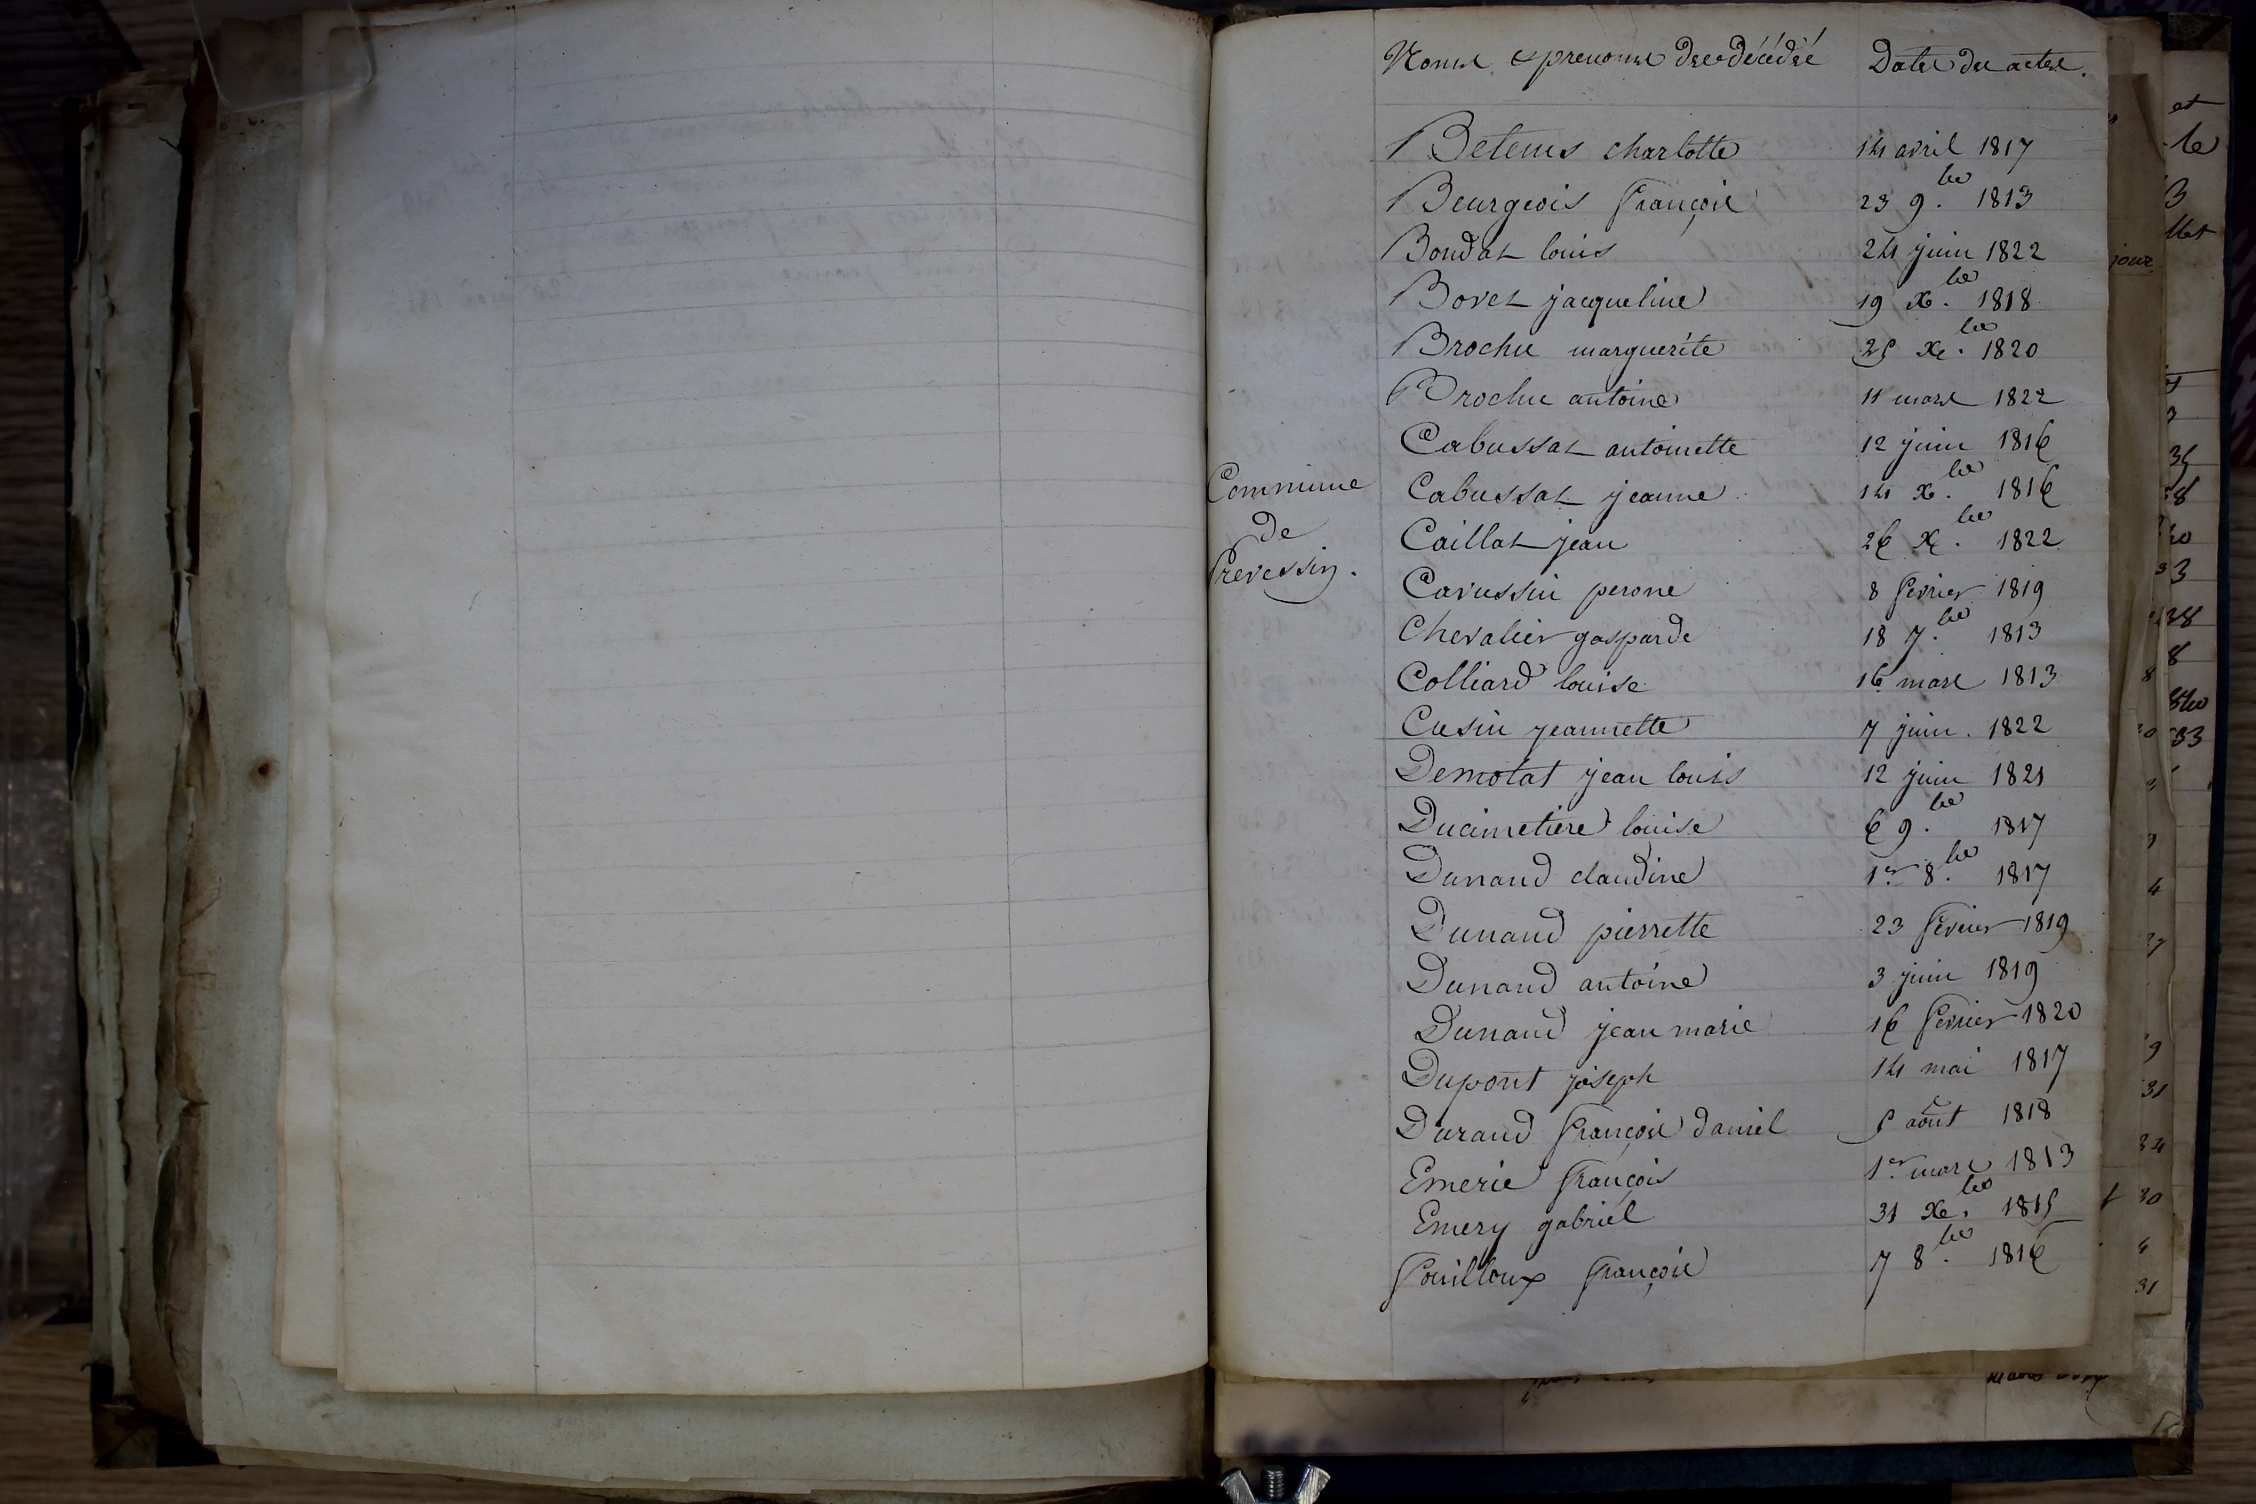 Noms et prenoms des décédés Dates des actes.
Betems charlotte 14 avril 1817
Beurgeois françois 23 9.bre 1813
Boudat louis 24 juin 1822
Bovet jacqueline 19 Xe.bre 1818
Brochu marguerite 25 Xe.bre 1820
Brochu antoine 11 mars 1822
Cabussat antoinette 12 juin 1816
Cabussat jeanne 14 Xe.bre 1816
Caillat jean 26 Xe.bre 1822
Commune
de
Prevessin.
Cavussin perone 8 fevrier 1819
Chevalier gasparde 18 7.bre 1813
Colliard louise 16 mars 1813
Cusin jeannette 7 juin. 1822
Demolat jean louis 12 juin 1821
Ducimetiere louise 6 9.bre 1817
Dunand claudine 1er 8.bre 1817
Dunand pierrette 23 fevrier 1819
Dunand antoine 3 juin 1819
Dunand jean marie 16 fevrier 1820
Dupont joseph 14 mai 1817
Durand françois daniel 5 août 1818
Emerie françois 1er mars 1813
Emery gabriel 31 Xe.bre 1815
Fouilloux françois 7 8.bre 1816